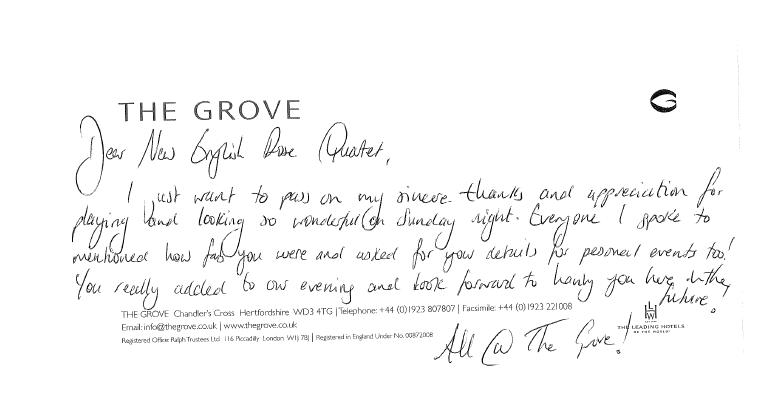 THE GROVE
Dear New English Rose Quartet,
I just want to pass on my sincere thanks and appreciation for
playing and looking so wonderful on Sunday night. Everyone I spoke to
mentioned how fab you were and asked for your details for personal events too!
You really added to our evening and look forward to having you here in the
future.
THE GROVE Chandler's Cross Hertfordshire WD3 4TG | Telephone: +44 (0)1923 807807 | Facsimile: +44 (0)1923 221008
Email: info@thegrove.co.uk | www.thegrove.co.uk
Registered Office: Ralph Trustees Ltd 116 Piccadilly London W1J 7BJ | Registered in England Under No. 00872008
THE LEADING HOTELS
OF THE WORLD
All @ The Grove!